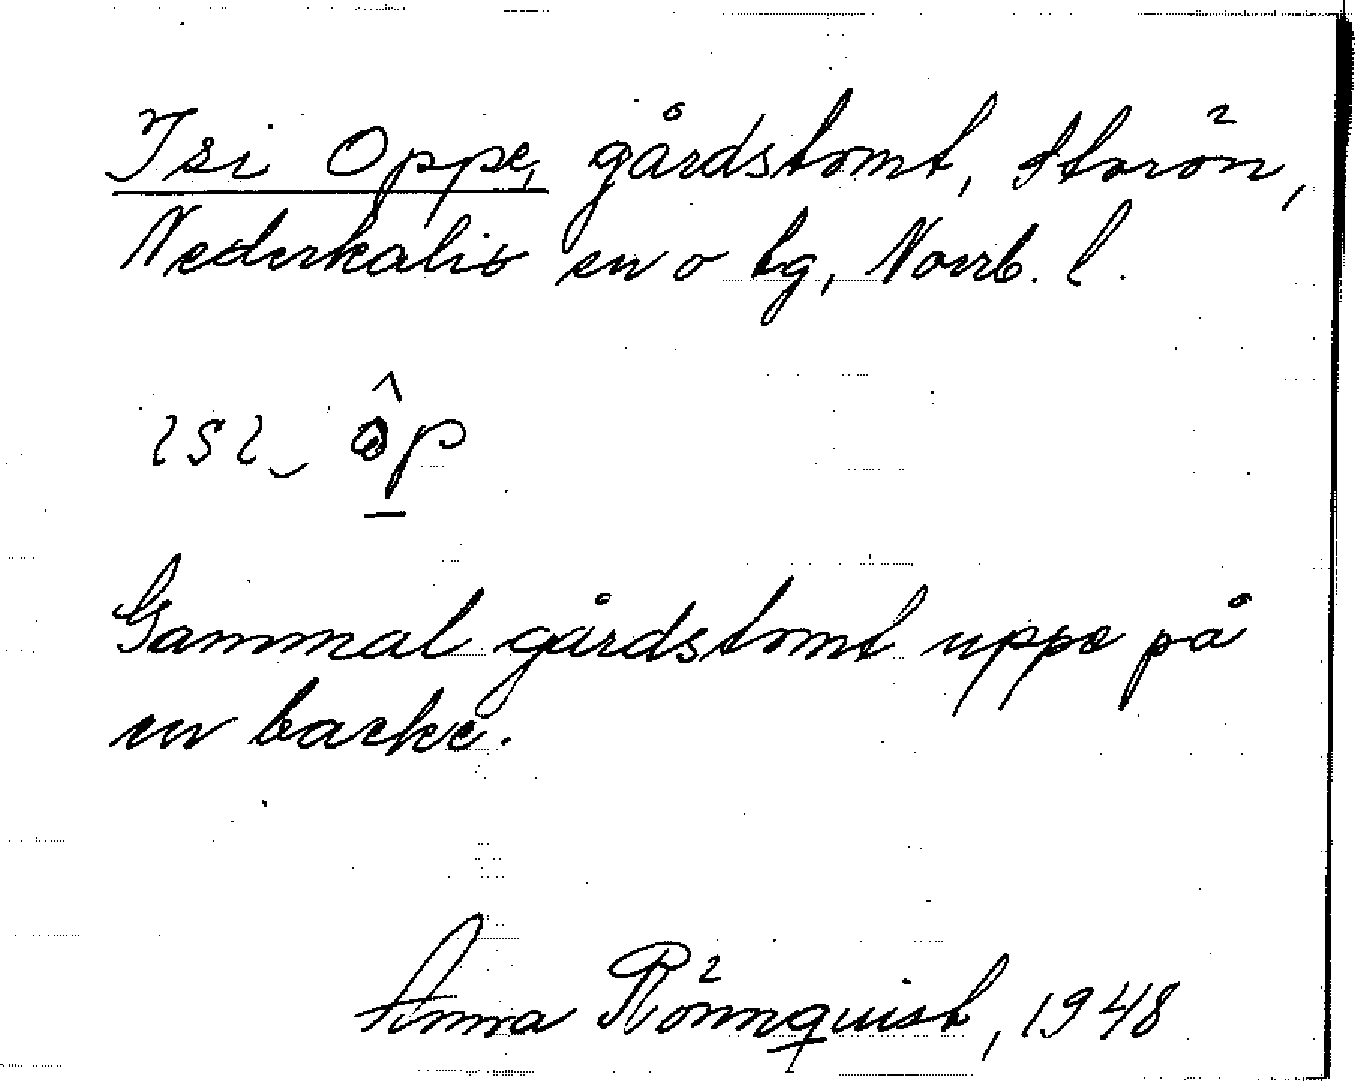 Isi Oppe, gårdstomt, Storön,
Nederkalix sn o tg, Norrb. l.
ɩsɩ‿ ôp
Gammal gårdstomt uppe på
en backe.
Anna Rönnquist, 1948